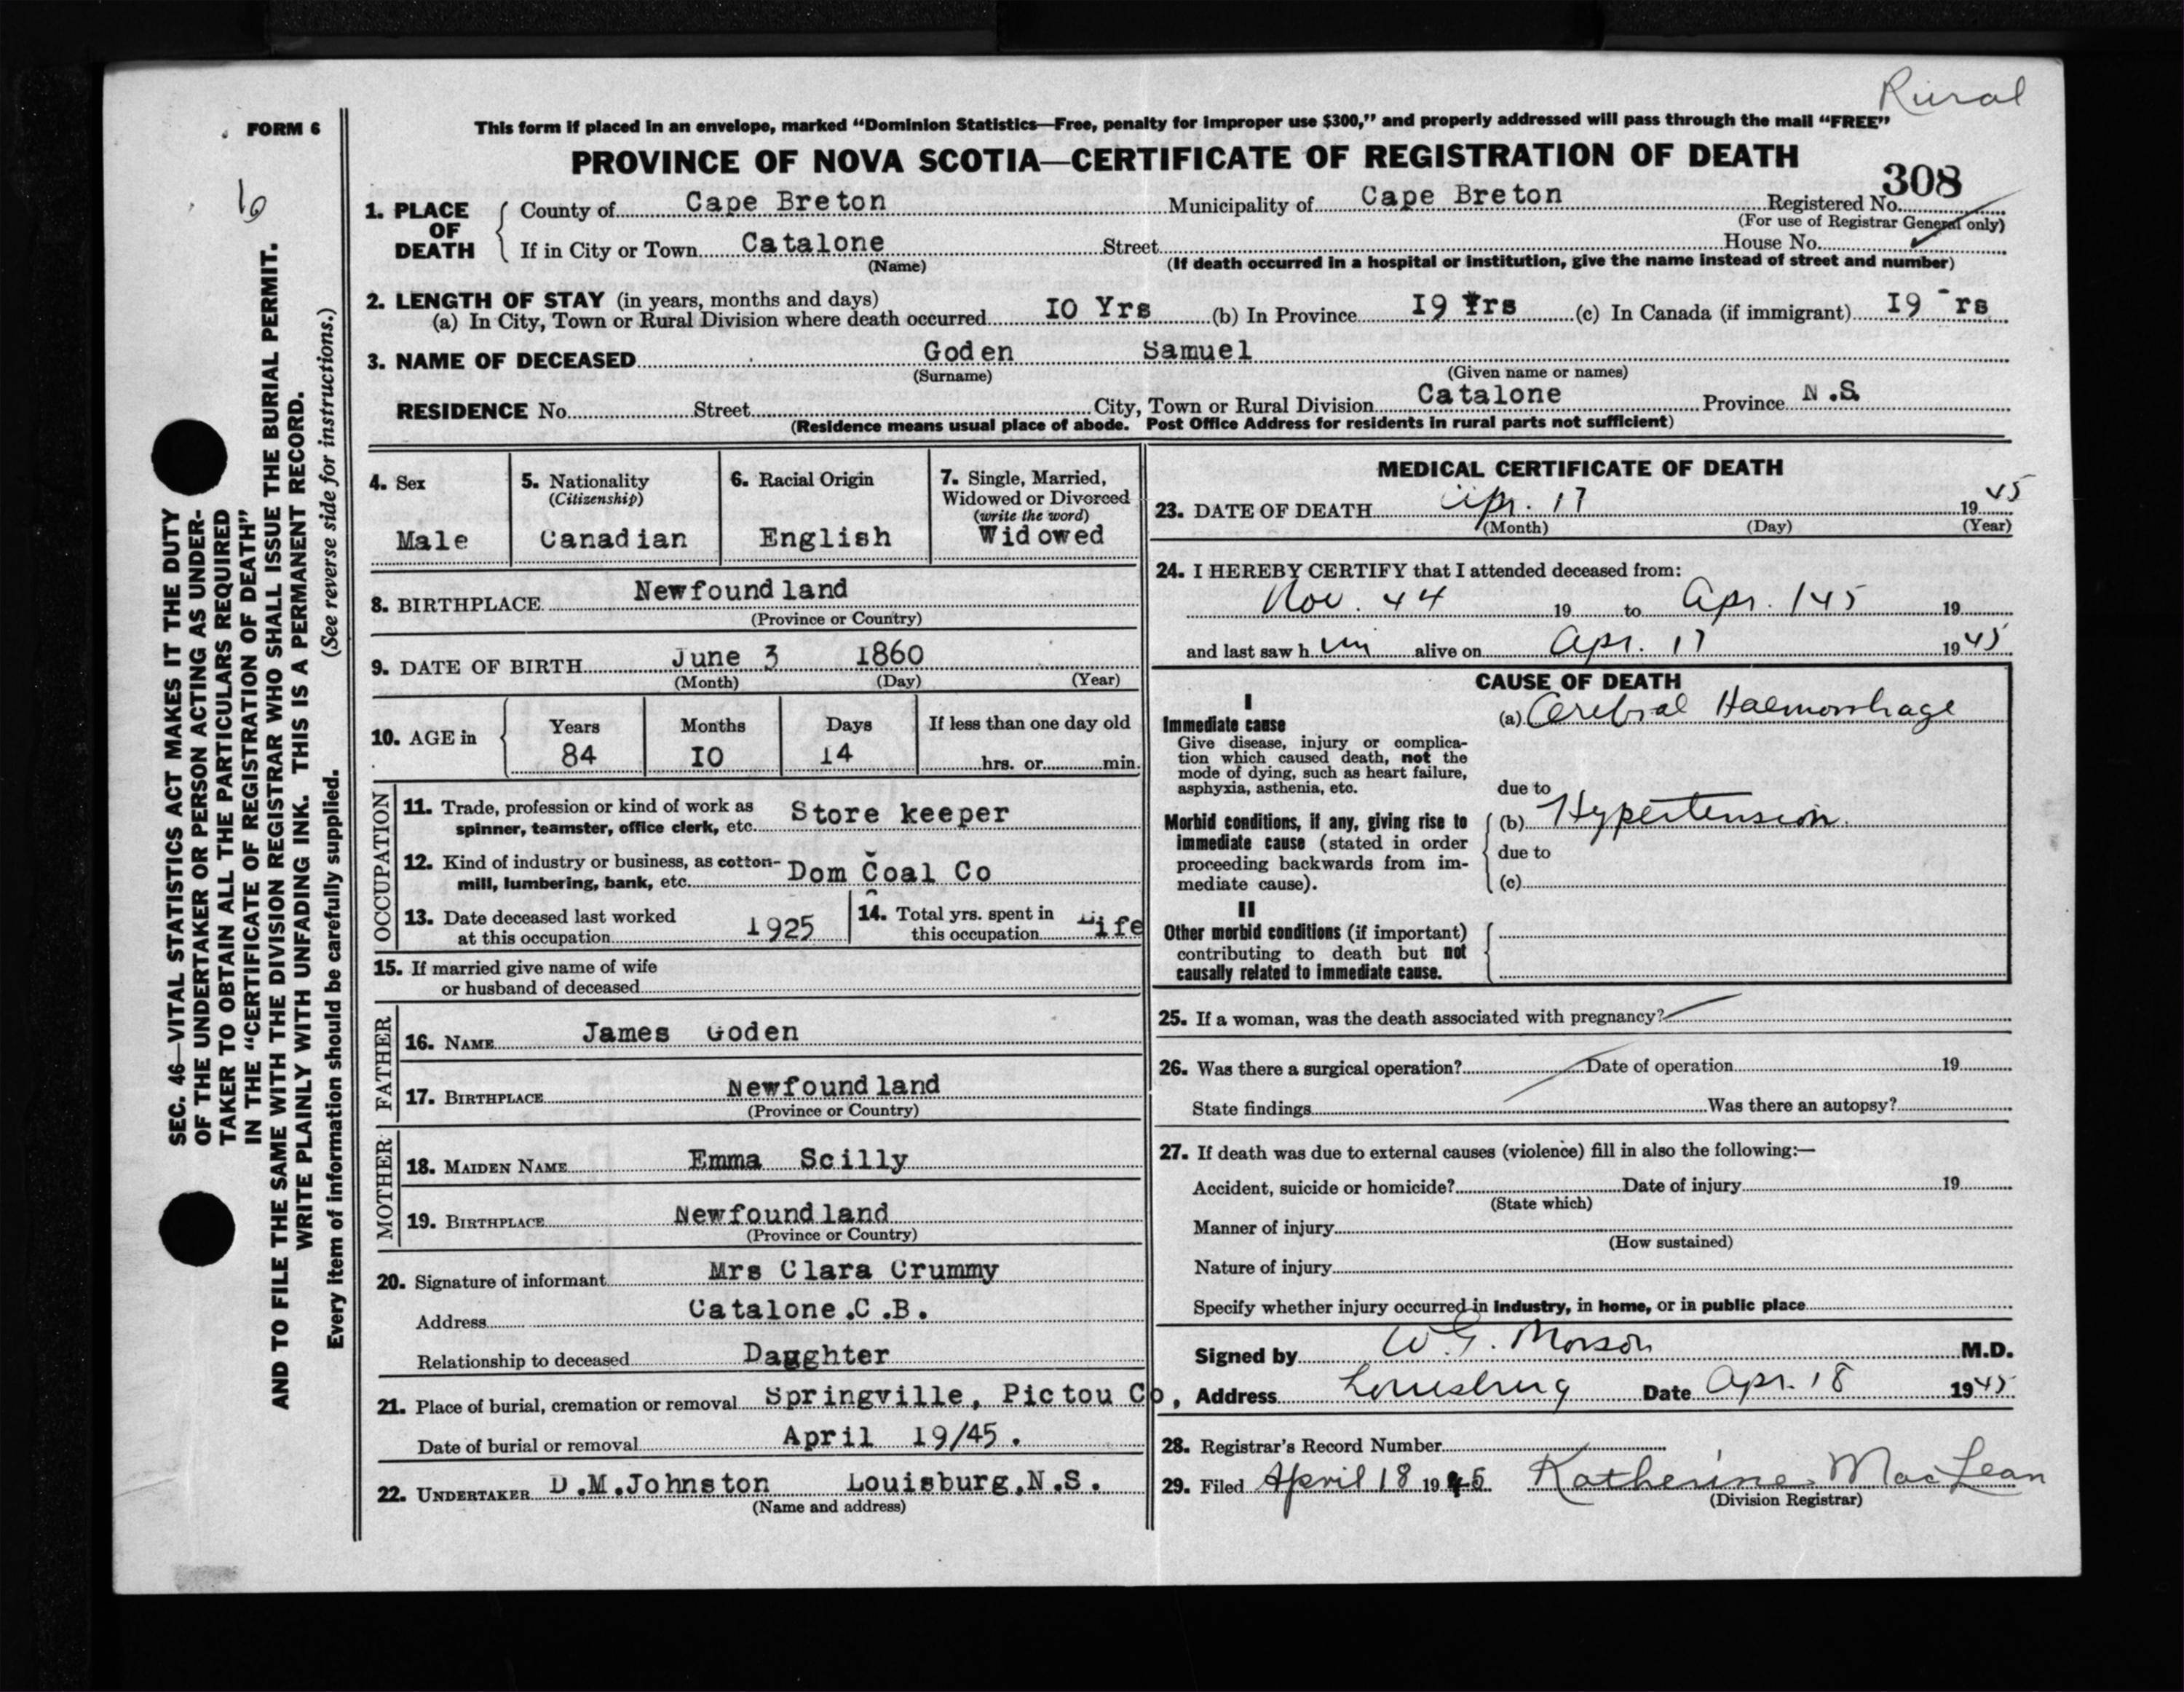 Rural
FORM 6
This form if placed in an envelope, marked “Dominion Statistics—Free, penalty for improper use $300,” and properly addressed will pass through the mail “FREE”
PROVINCE OF NOVA SCOTIA—CERTIFICATE OF REGISTRATION OF DEATH
308
1. PLACE OF DEATH
County of Cape Breton Municipality of Cape Breton Registered No.
(For use of Registrar General only)
If in City or Town Catalone Street House No.
(Name) (If death occurred in a hospital or institution, give the name instead of street and number)
2. LENGTH OF STAY (in years, months and days)
(a) In City, Town or Rural Division where death occurred IO Yrs (b) In Province I9 Yrs (c) In Canada (if immigrant) I9 rs
3. NAME OF DECEASED Goden Samuel
(Surname) (Given name or names)
RESIDENCE No. Street City, Town or Rural Division Catalone Province N.S.
(Residence means usual place of abode. Post Office Address for residents in rural parts not sufficient)
4. Sex
Male
5. Nationality
(Citizenship)
Canadian
6. Racial Origin
English
7. Single, Married,
Widowed or Divorced
(write the word)
Widowed
8. BIRTHPLACE Newfoundland
(Province or Country)
9. DATE OF BIRTH June 3 1860
(Month) (Day) (Year)
10. AGE in
Years Months Days If less than one day old
84 IO 14 hrs. or min.
OCCUPATION
11. Trade, profession or kind of work as
spinner, teamster, office clerk, etc. Store keeper
12. Kind of industry or business, as cotton-
mill, lumbering, bank, etc. Dom Coal Co
13. Date deceased last worked
at this occupation 1925
14. Total yrs. spent in
this occupation Life
15. If married give name of wife
or husband of deceased
FATHER
16. NAME James Goden
17. BIRTHPLACE Newfoundland
(Province or Country)
MOTHER
18. MAIDEN NAME Emma Scilly
19. BIRTHPLACE Newfoundland
(Province or Country)
20. Signature of informant Mrs Clara Crummy
Address Catalone.C.B.
Relationship to deceased Daughter
21. Place of burial, cremation or removal Springville, Pictou Co,
Date of burial or removal April 19/45.
22. UNDERTAKER D.M.Johnston Louisburg,N.S.
(Name and address)
MEDICAL CERTIFICATE OF DEATH
23. DATE OF DEATH Apr. 17 1945
(Month) (Day) (Year)
24. I HEREBY CERTIFY that I attended deceased from:
Nov. 44 19 to Apr. 145 19
and last saw h im alive on Apr. 17 1945
CAUSE OF DEATH
I
Immediate cause
Give disease, injury or complica-
tion which caused death, not the
mode of dying, such as heart failure,
asphyxia, asthenia, etc.
(a) Cerebral Haemorrhage
due to
Morbid conditions, if any, giving rise to
immediate cause (stated in order
proceeding backwards from im-
mediate cause).
(b) Hypertension.
due to
(c)
II
Other morbid conditions (if important)
contributing to death but not
causally related to immediate cause.
25. If a woman, was the death associated with pregnancy?
26. Was there a surgical operation? Date of operation 19
State findings Was there an autopsy?
27. If death was due to external causes (violence) fill in also the following:—
Accident, suicide or homicide? Date of injury 19
(State which)
Manner of injury
(How sustained)
Nature of injury
Specify whether injury occurred in industry, in home, or in public place
Signed by W.G. Morson M.D.
Address Louisburg Date Apr. 18 1945
28. Registrar's Record Number
29. Filed April 18 1945 Katherine MacLean
(Division Registrar)
SEC. 46—VITAL STATISTICS ACT MAKES IT THE DUTY
OF THE UNDERTAKER OR PERSON ACTING AS UNDER-
TAKER TO OBTAIN ALL THE PARTICULARS REQUIRED
IN THE “CERTIFICATE OF REGISTRATION OF DEATH”
AND TO FILE THE SAME WITH THE DIVISION REGISTRAR WHO SHALL ISSUE THE BURIAL PERMIT.
WRITE PLAINLY WITH UNFADING INK. THIS IS A PERMANENT RECORD.
Every item of information should be carefully supplied. (See reverse side for instructions.)